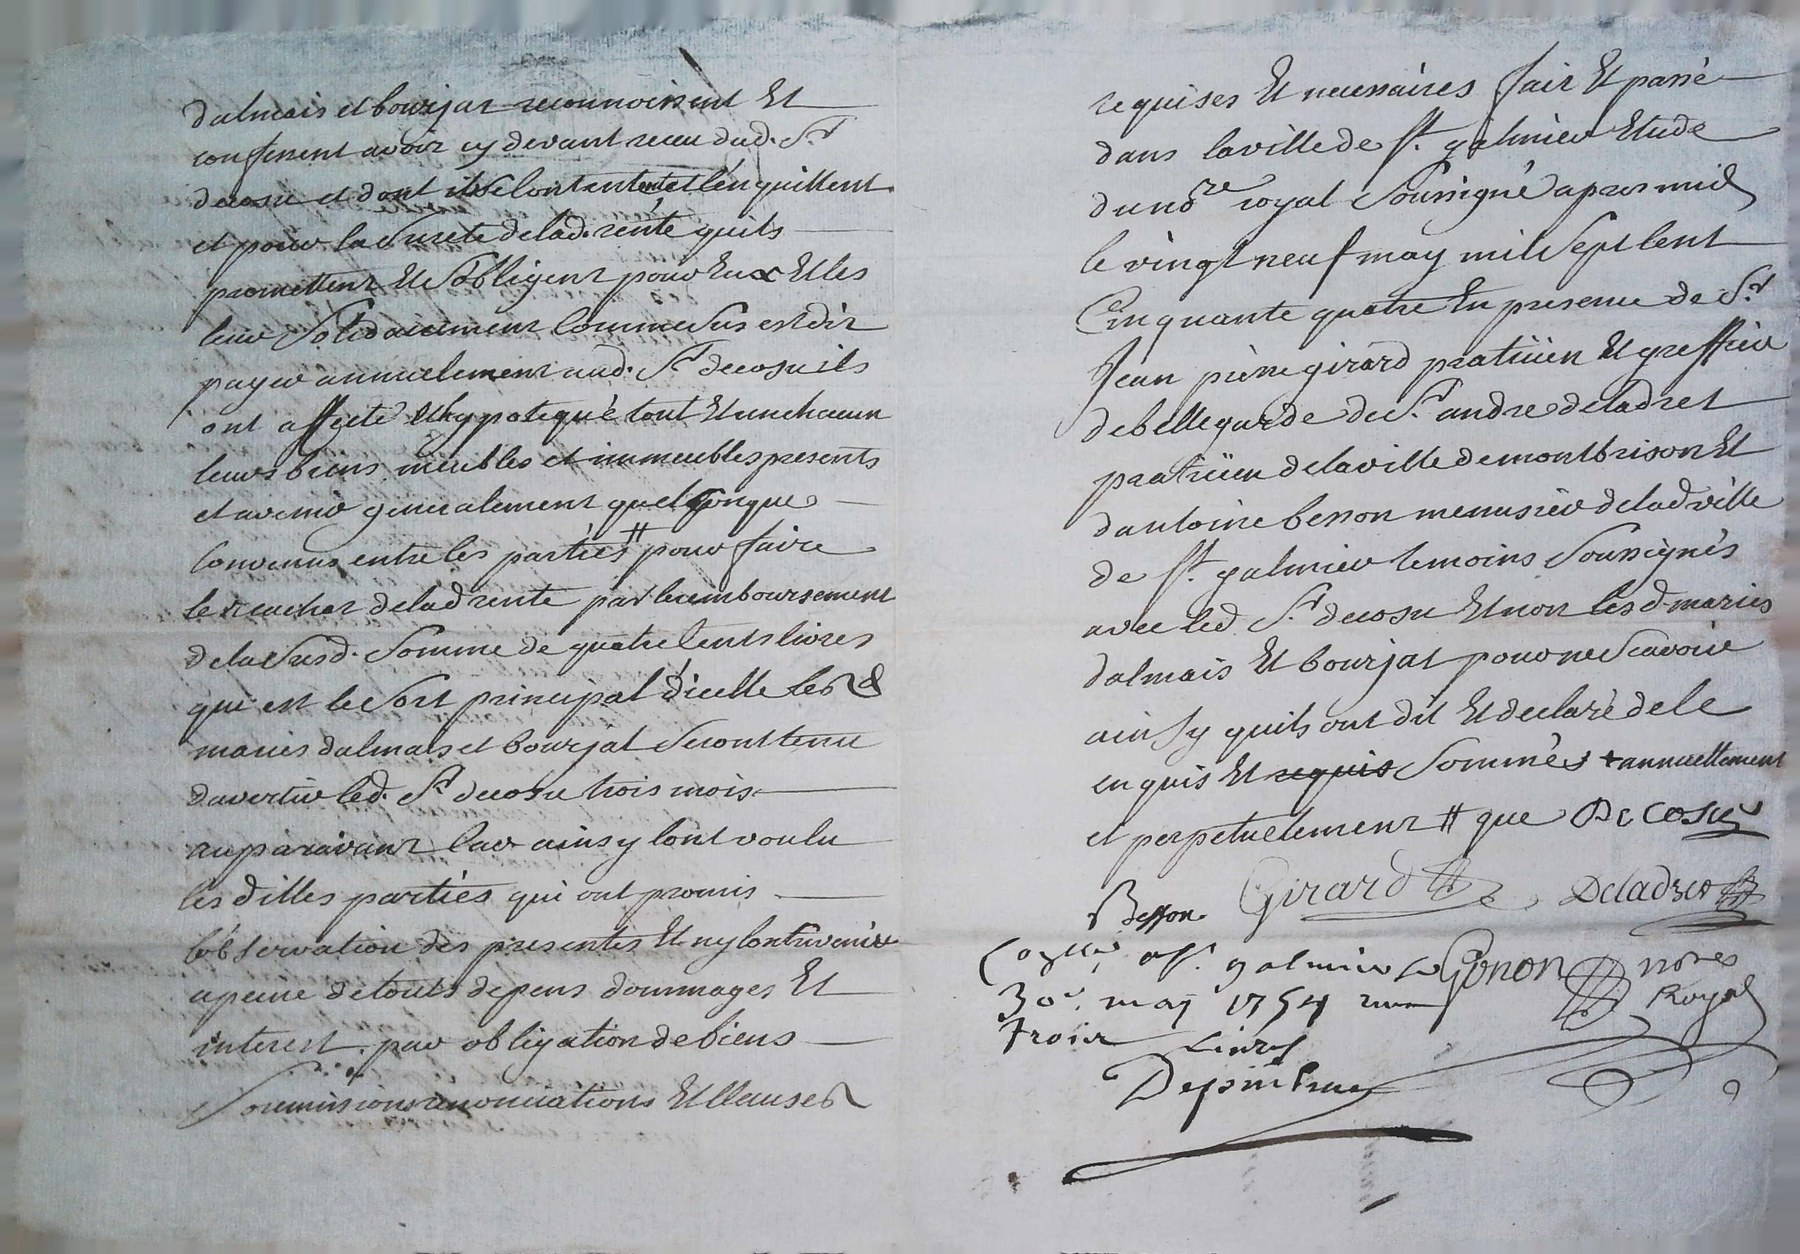 dalmais et bourjat reconnoissent Et
confessent avoir cy devant receu dud. Sr
decosu et dont ils se contentent et l'en quittent
et pour la surete de lad. rente quils
promettent Et s'obligent pour Eux Et les
leur solidairement comme sus est dit
payer annuelement aud. Sr decosu ils
ont affecté Ethypotequé tout Et un chacun
leurs biens meubles et immeubles presents
et avenir generalement quelconque
convenus entre les parties # pour faire
le rachat de lad rente par le remboursement
de la susd. somme de quatre cents livres
qui est le sort principal d'icelle les d
maries dalmais et bourjat seront tenu
davertir led. Sr decosu trois mois
auparavant car ainsy l'ont voulu
les dittes parties qui ont promis
l'observation des presentes Et ny contrevenir
a peine de touts depens dommages Et
interest par obligation de biens
soumissions renonciations Et clauses
requises Et necessaires fait Et passé
dans la ville de St. galmier Etude
du nore royal soussigné apres midy
le vingt neuf may mil sept cent
Cinquante quatre En presence de Sr
Jean pierre girard praticien Et greffier
de bellegarde de Sr andre deladret
praticien de la ville de montbrison Et
dantoine besson menusier de lad ville
de St. galmier temoins soussignés
avec led Sr decosu Et non les d. maries
dalmais Et bourjat pour ne scavoir
ainsy quils ont dit Et declaré de ce
enquis Et requis sommés + annuellement
et perpetuelement # que De cosu
Besson Girard Deladret
a St. galmier le Gonon nore
30e. may 1754 Royal
trois Livres